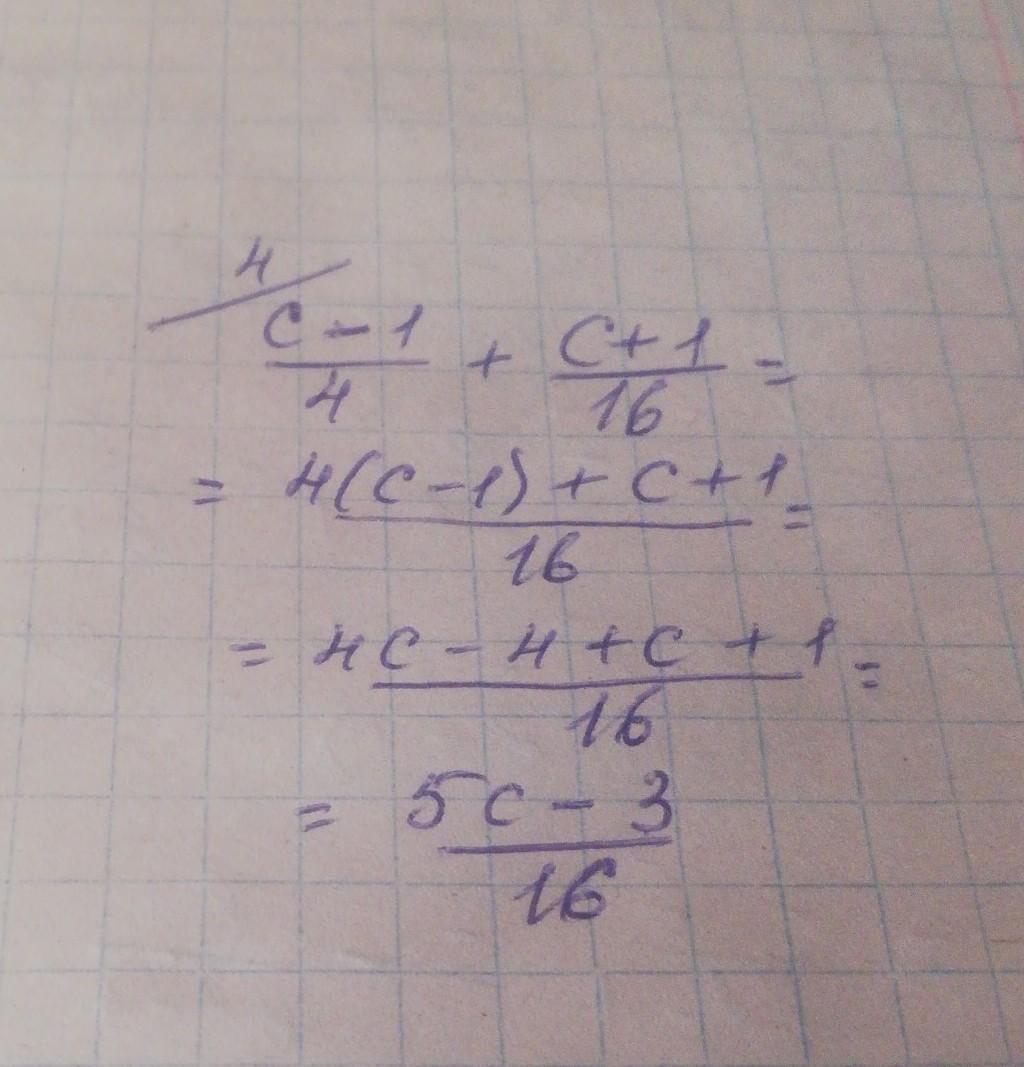 4
c - 1 / 4 + c + 1 / 16 =
= 4(c - 1) + c + 1 / 16 =
= 4c - 4 + c + 1 / 16 =
= 5c - 3 / 16